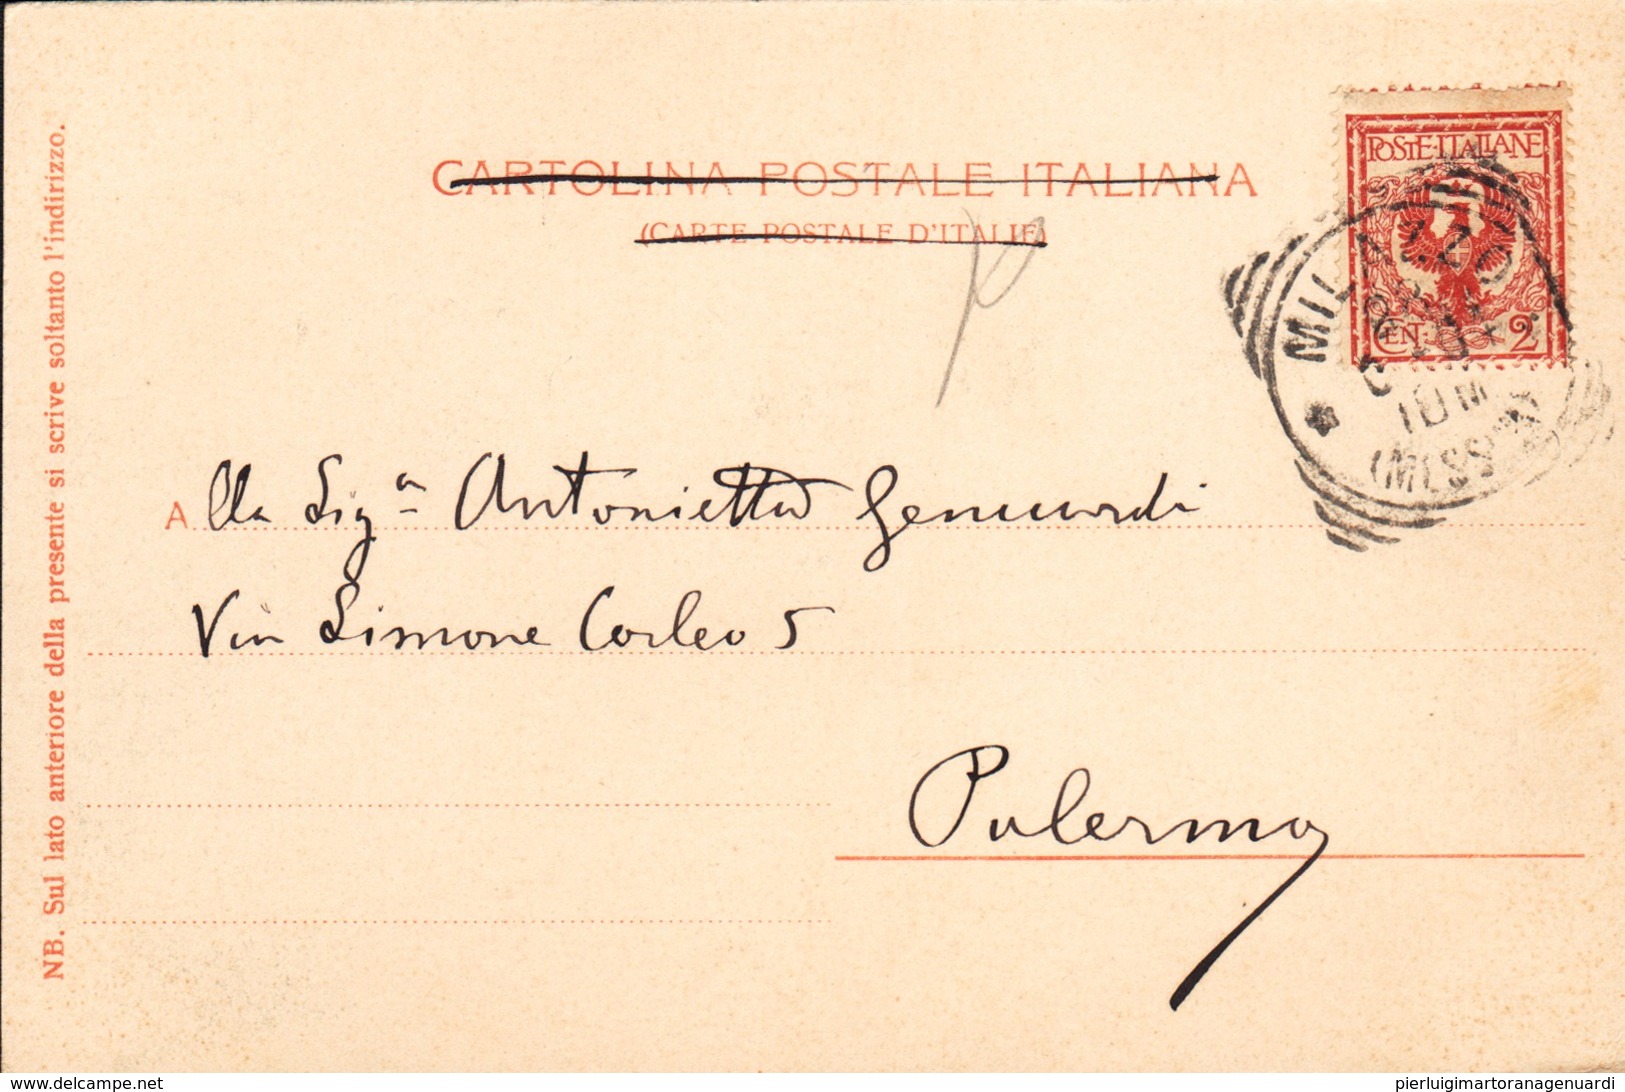 CARTOLINA POSTALE ITALIANA
(CARTE POSTALE D'ITALIE)
POSTE·ITALIANE
CEN. 2
MILAZZO
10 M
(MESSINA)
Alla Sig.a Antonietta Genuardi
Via Simone Corleo 5
Palermo
NB. Sul lato anteriore della presente si scrive soltanto l'indirizzo.
www.delcampe.net
pierluigimartoranagenuardi